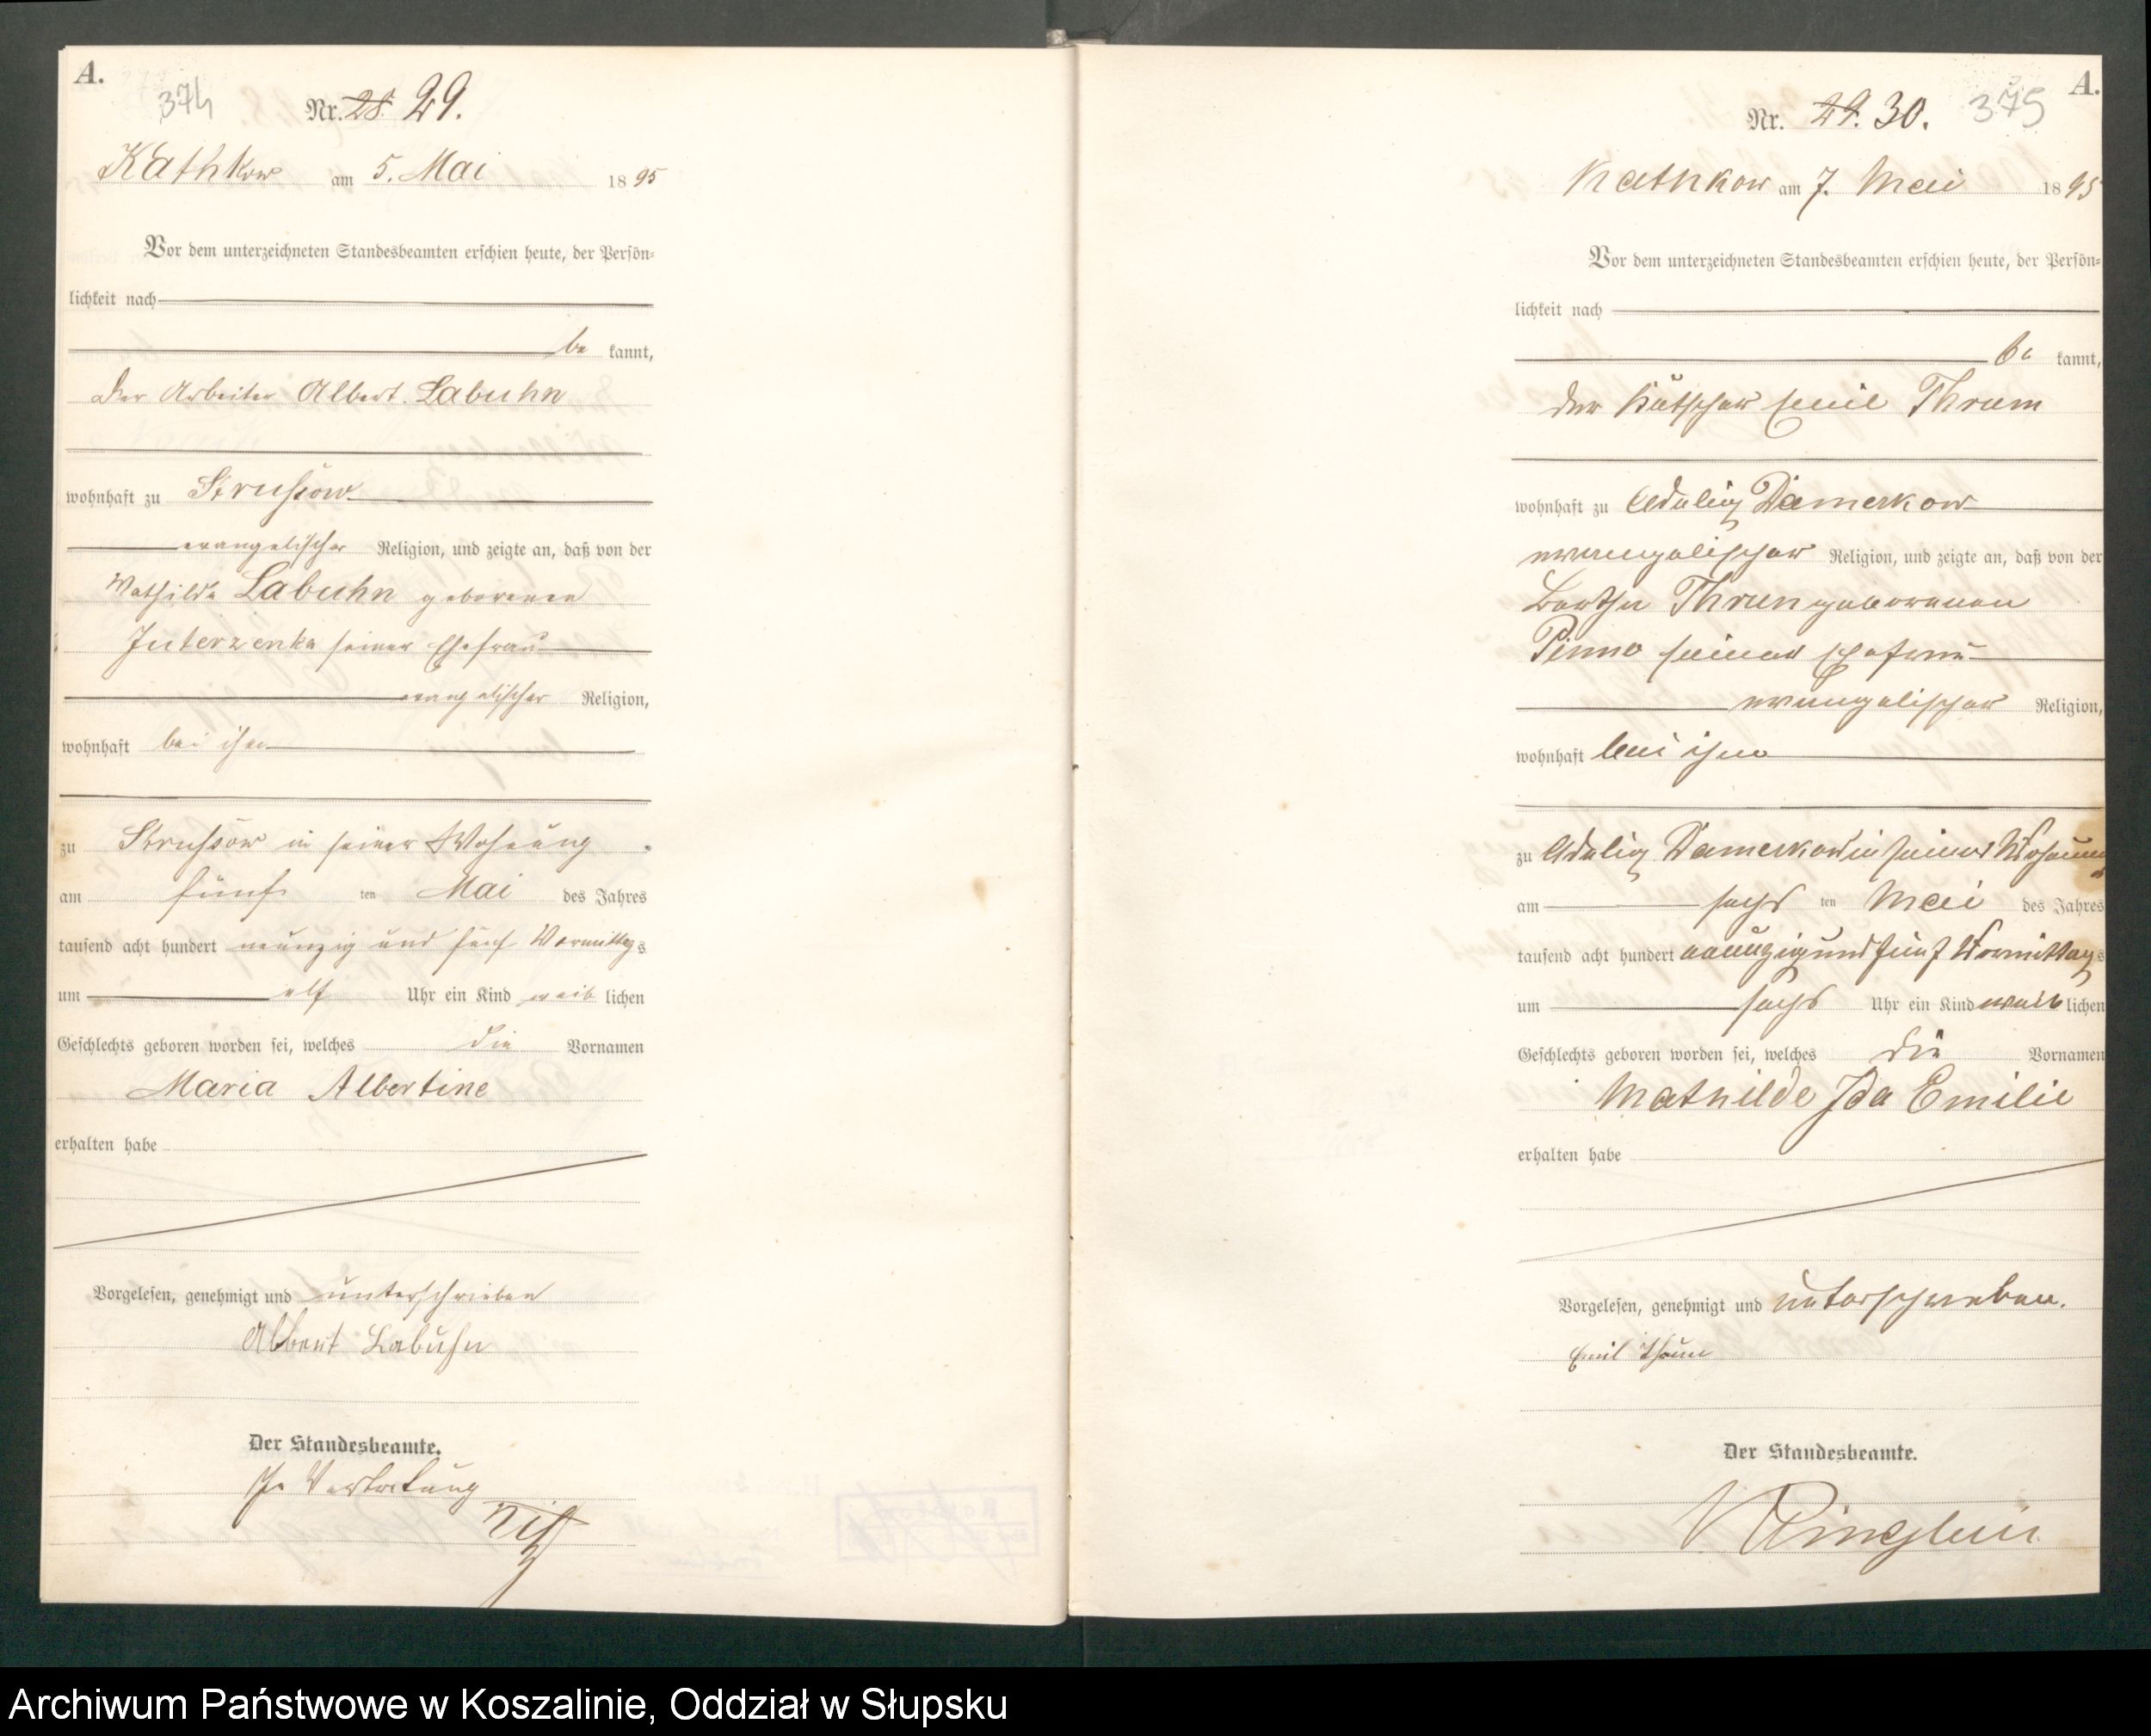 A.
374
Nr. 28. 29.
Kathkow am 5. Mai 1895
Vor dem unterzeichneten Standesbeamten erschien heute, der Persön-
lichkeit nach
be kannt,
der Arbeiter Albert Labuhn
wohnhaft zu Strussow
evangelischer Religion, und zeigte an, daß von der
Mathilde Labuhn geborenen
Juterzenka seiner Ehefrau
evangelischer Religion,
wohnhaft bei ihm
zu Strussow in seiner Wohnung
am fünf ten Mai des Jahres
tausend acht hundert neunzig und fünf Vormittags
um elf Uhr ein Kind weib lichen
Geschlechts geboren worden sei, welches die Vornamen
Maria Albertine
erhalten habe
Vorgelesen, genehmigt und unterschrieben
Albert Labuhn
Der Standesbeamte.
In Vertretung
A.
375
Nr. 29. 30.
Kathkow am 7. Mai 1895
Vor dem unterzeichneten Standesbeamten erschien heute, der Persön-
lichkeit nach
be kannt,
der Kutscher Emil Thrun
wohnhaft zu Adelig Damerkow
evangelischer Religion, und zeigte an, daß von der
Bertha Thrun geborenen
Pinno seiner Ehefrau
evangelischer Religion,
wohnhaft bei ihm
zu Adelig Damerkow in seiner Wohnung
am sechs ten Mai des Jahres
tausend acht hundert neunzig und fünf Vormittags
um sechs Uhr ein Kind weib lichen
Geschlechts geboren worden sei, welches die Vornamen
Mathilde Ida Emilie
erhalten habe
Vorgelesen, genehmigt und unterschrieben.
Emil Thrun
Der Standesbeamte.
Archiwum Państwowe w Koszalinie, Oddział w Słupsku